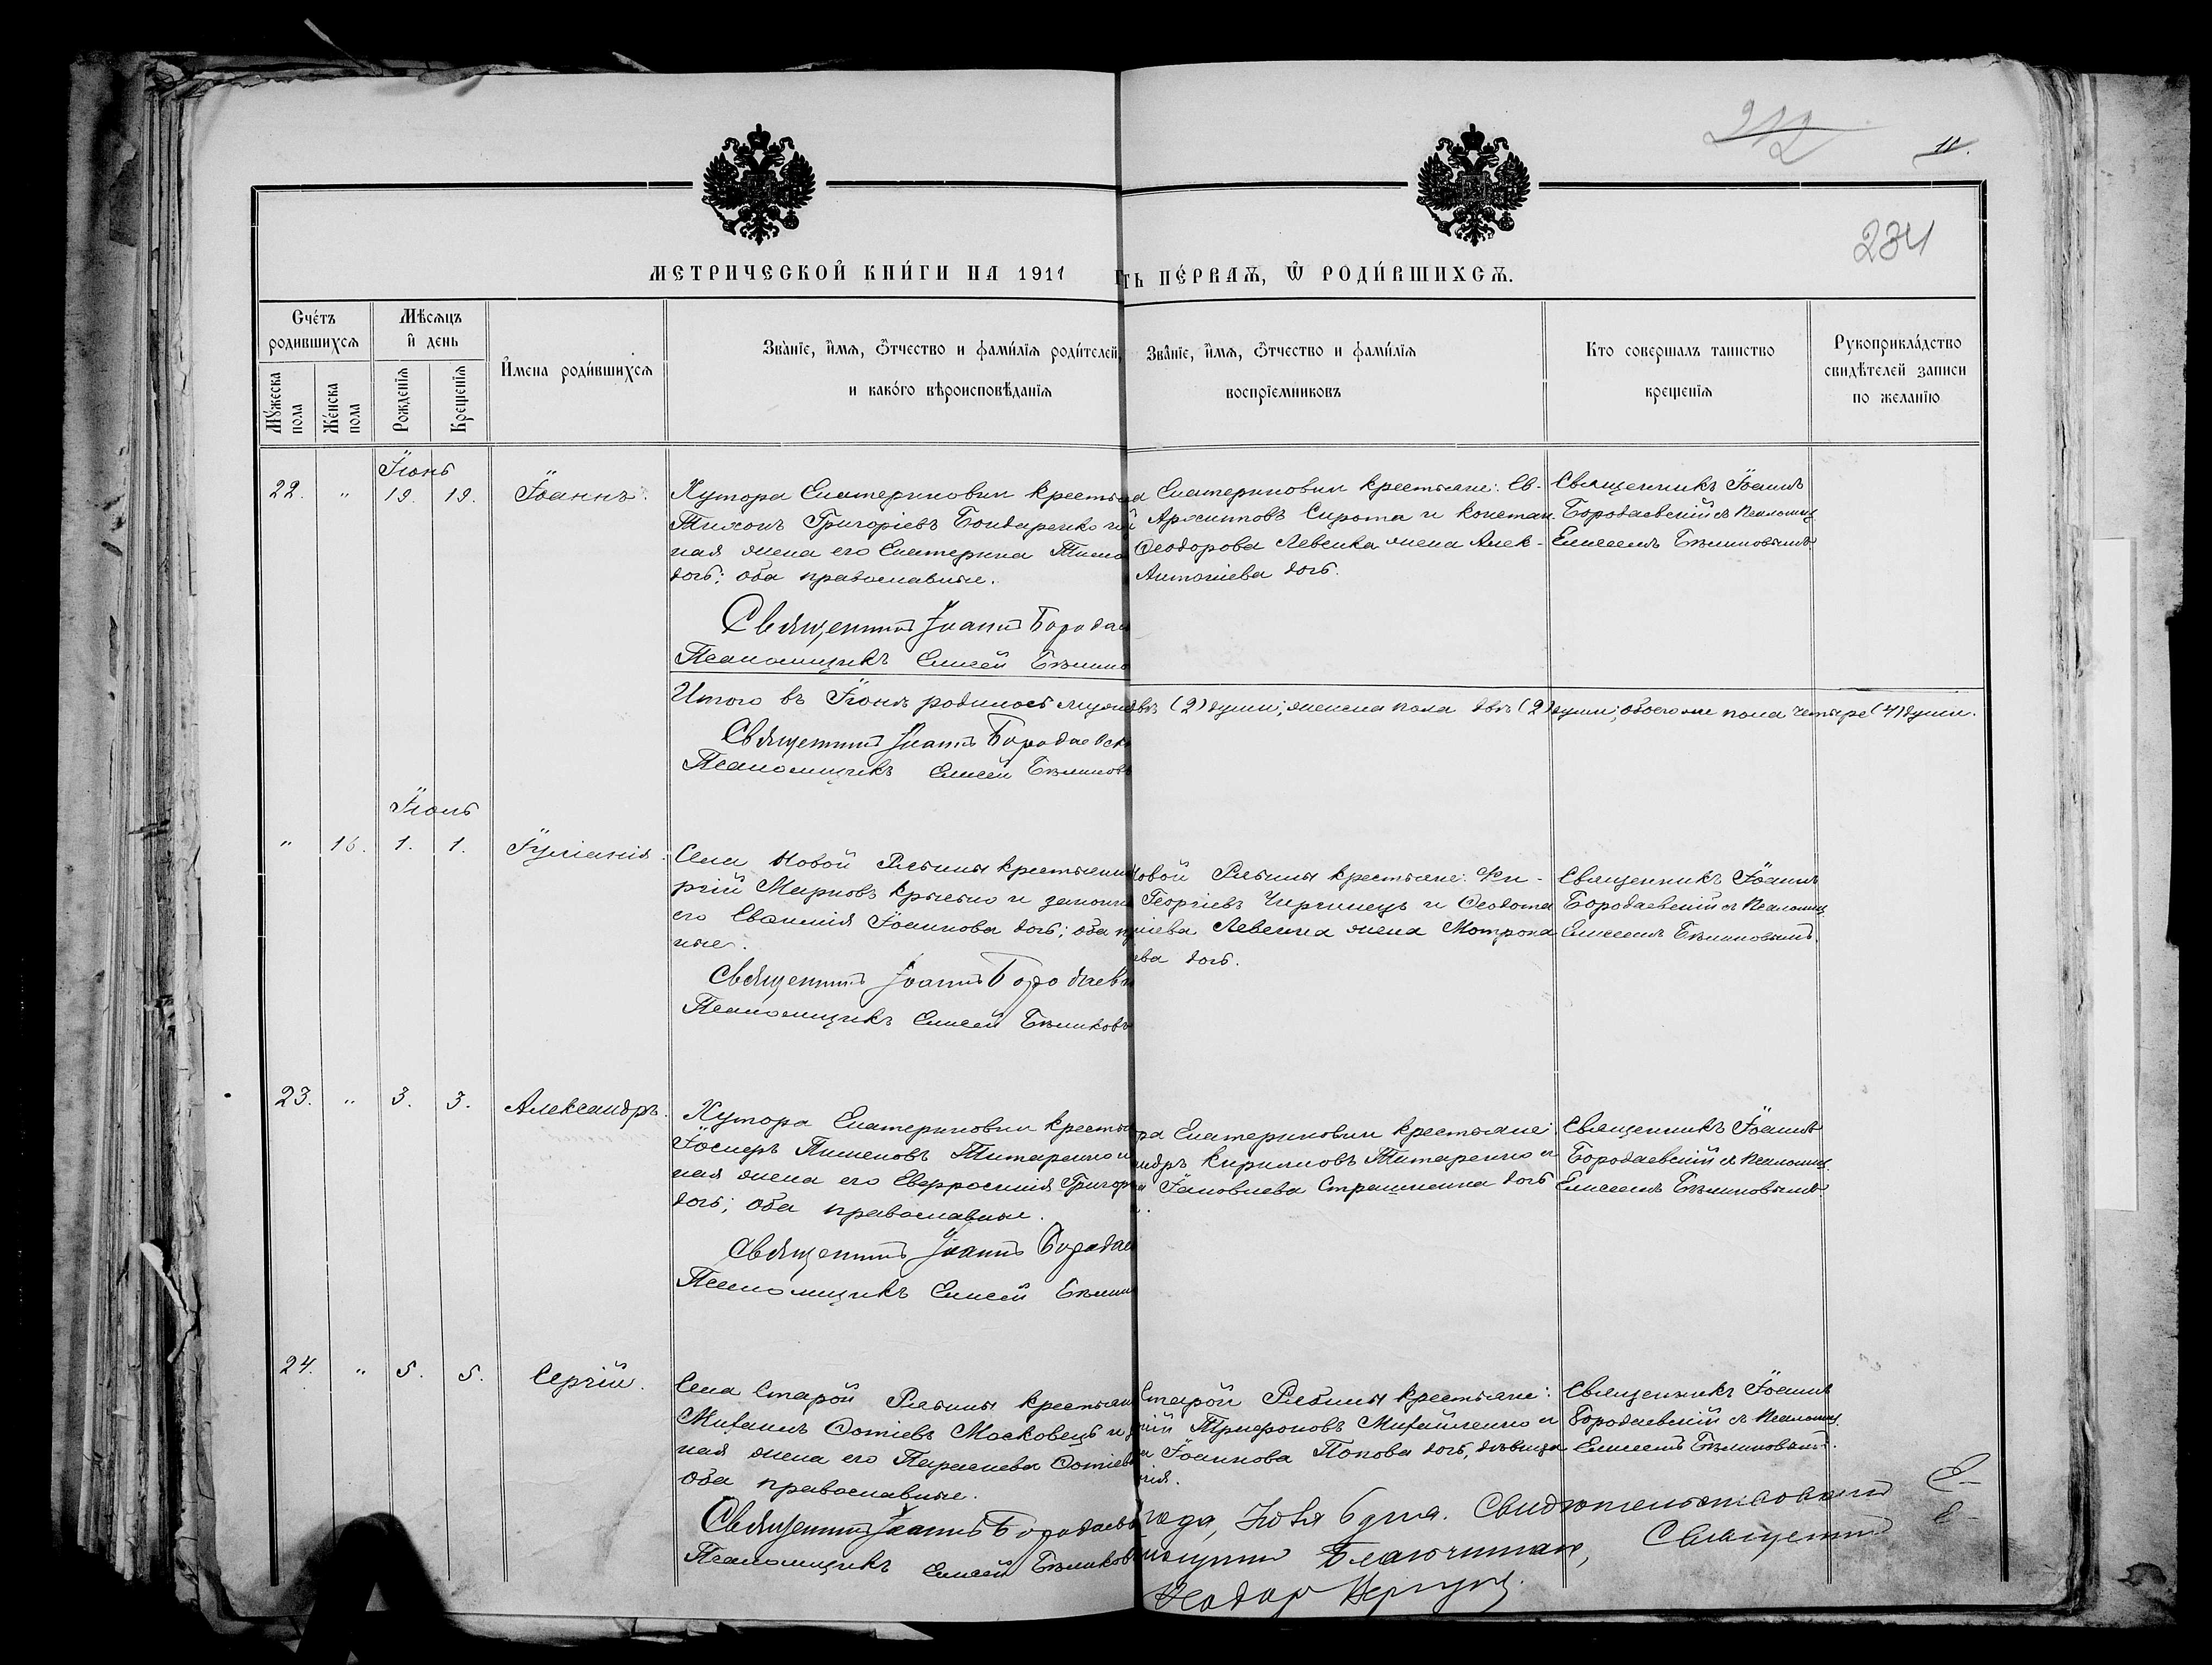 212
11.
234
МЕТРИЧЕСКОЙ КНИ́ГИ НА 1911
ть ПЕ́РВАѦ, Ѿ РОДИ́ВШИХСѦ.
Сче́тъ родившихсѧ
Мѣсѧцъ и҆ день
Му́жеска пола
Же́нска пола
Рожденїѧ
Крещенїѧ
И҆мена роди́вшихсѧ
Зва́нїе, и҆мѧ, ѻ҆тчество и фами́лїѧ роди́телей,
и како́го вѣроисповѣ́данїѧ
Зва́нїе, и҆мѧ, ѻ҆тчество и фами́лїѧ
воспрїемниковъ
Кто совершалъ таинство
крещенїѧ
Рукоприкла́дство
свидѣ́телей записи
по желанїю
Іюнь
22. " 19. 19. Іоаннъ.
Хутора Екатериновки крестья
Тихонъ Григоріевъ Бондаренко
ная жена его Екатерина Тимо
дочь; оба православные.
Священникъ Іоаннъ Бородаев
Псаломщикъ Елисей Бѣлико
а Екатериновки крестьяне: Ев-
Архиповъ Сирота и Констан
Ѳеодорова Левенка жена Алек-
Антоніева дочь.
Священникъ Іоаннъ
Бородаевскій съ Псаломщ.
Елисеемъ Бѣликовымъ
Итого въ Іюнѣ родилось мужс двѣ (2) души; женска пола двѣ (2) души; обоего же пола четыре (4) души.
Священникъ Іоаннъ Бородаевск
Псаломщикъ Елисей Бѣликовъ
Іюль
" 16. 1. 1. Іуліанія.
Села Новой Рябины крестьянин
ргій Марковъ и законн
его Евѳимія Іоаннова дочь; оба п
ные.
Священникъ Іоаннъ Бородаевск
Псаломщикъ Елисей Бѣликовъ
овой Рябины крестьяне: Фи-
Георгіевъ Чирчинецъ и Ѳеодота
Левенка жена Мотрона
ева дочь.
Священникъ Іоаннъ
Бородаевскій съ Псаломщ.
Елисеемъ Бѣликовымъ.
23. " 3. 3. Александръ.
Хутора Екатериновки крестья
Іосифъ Пименовъ Титаренко и
ная жена его Евфросинія Григор
дочь; оба православные.
Священникъ Іоаннъ Бородаев
Псаломщикъ Елисей Бѣлик
ра Екатериновки крестьяне:
андръ Кирилловъ Титаренко и
Іаковлева дочь
Священникъ Іоаннъ
Бородаевскій съ Псаломщ.
Елисеемъ Бѣликовымъ
24. " 5. 5. Сергій.
Села Старой Рябины крестьян
Михаилъ Ѳотіевъ Московецъ и з
ная жена его Параскева Ѳотіев
оба православные.
Священникъ Іоаннъ Бородаевс
Псаломщикъ Елисей Бѣликов
Старой Рябины крестьяне:
рій Трифоновъ Михайленко и
Іоаннова Попова дочь, дѣвица
Священникъ Іоаннъ
Бородаевскій съ Псаломщ.
Елисеемъ Бѣликовымъ.
года, Іюля 6 дня. Свидѣтельствовалъ
Благочинный, Священникъ